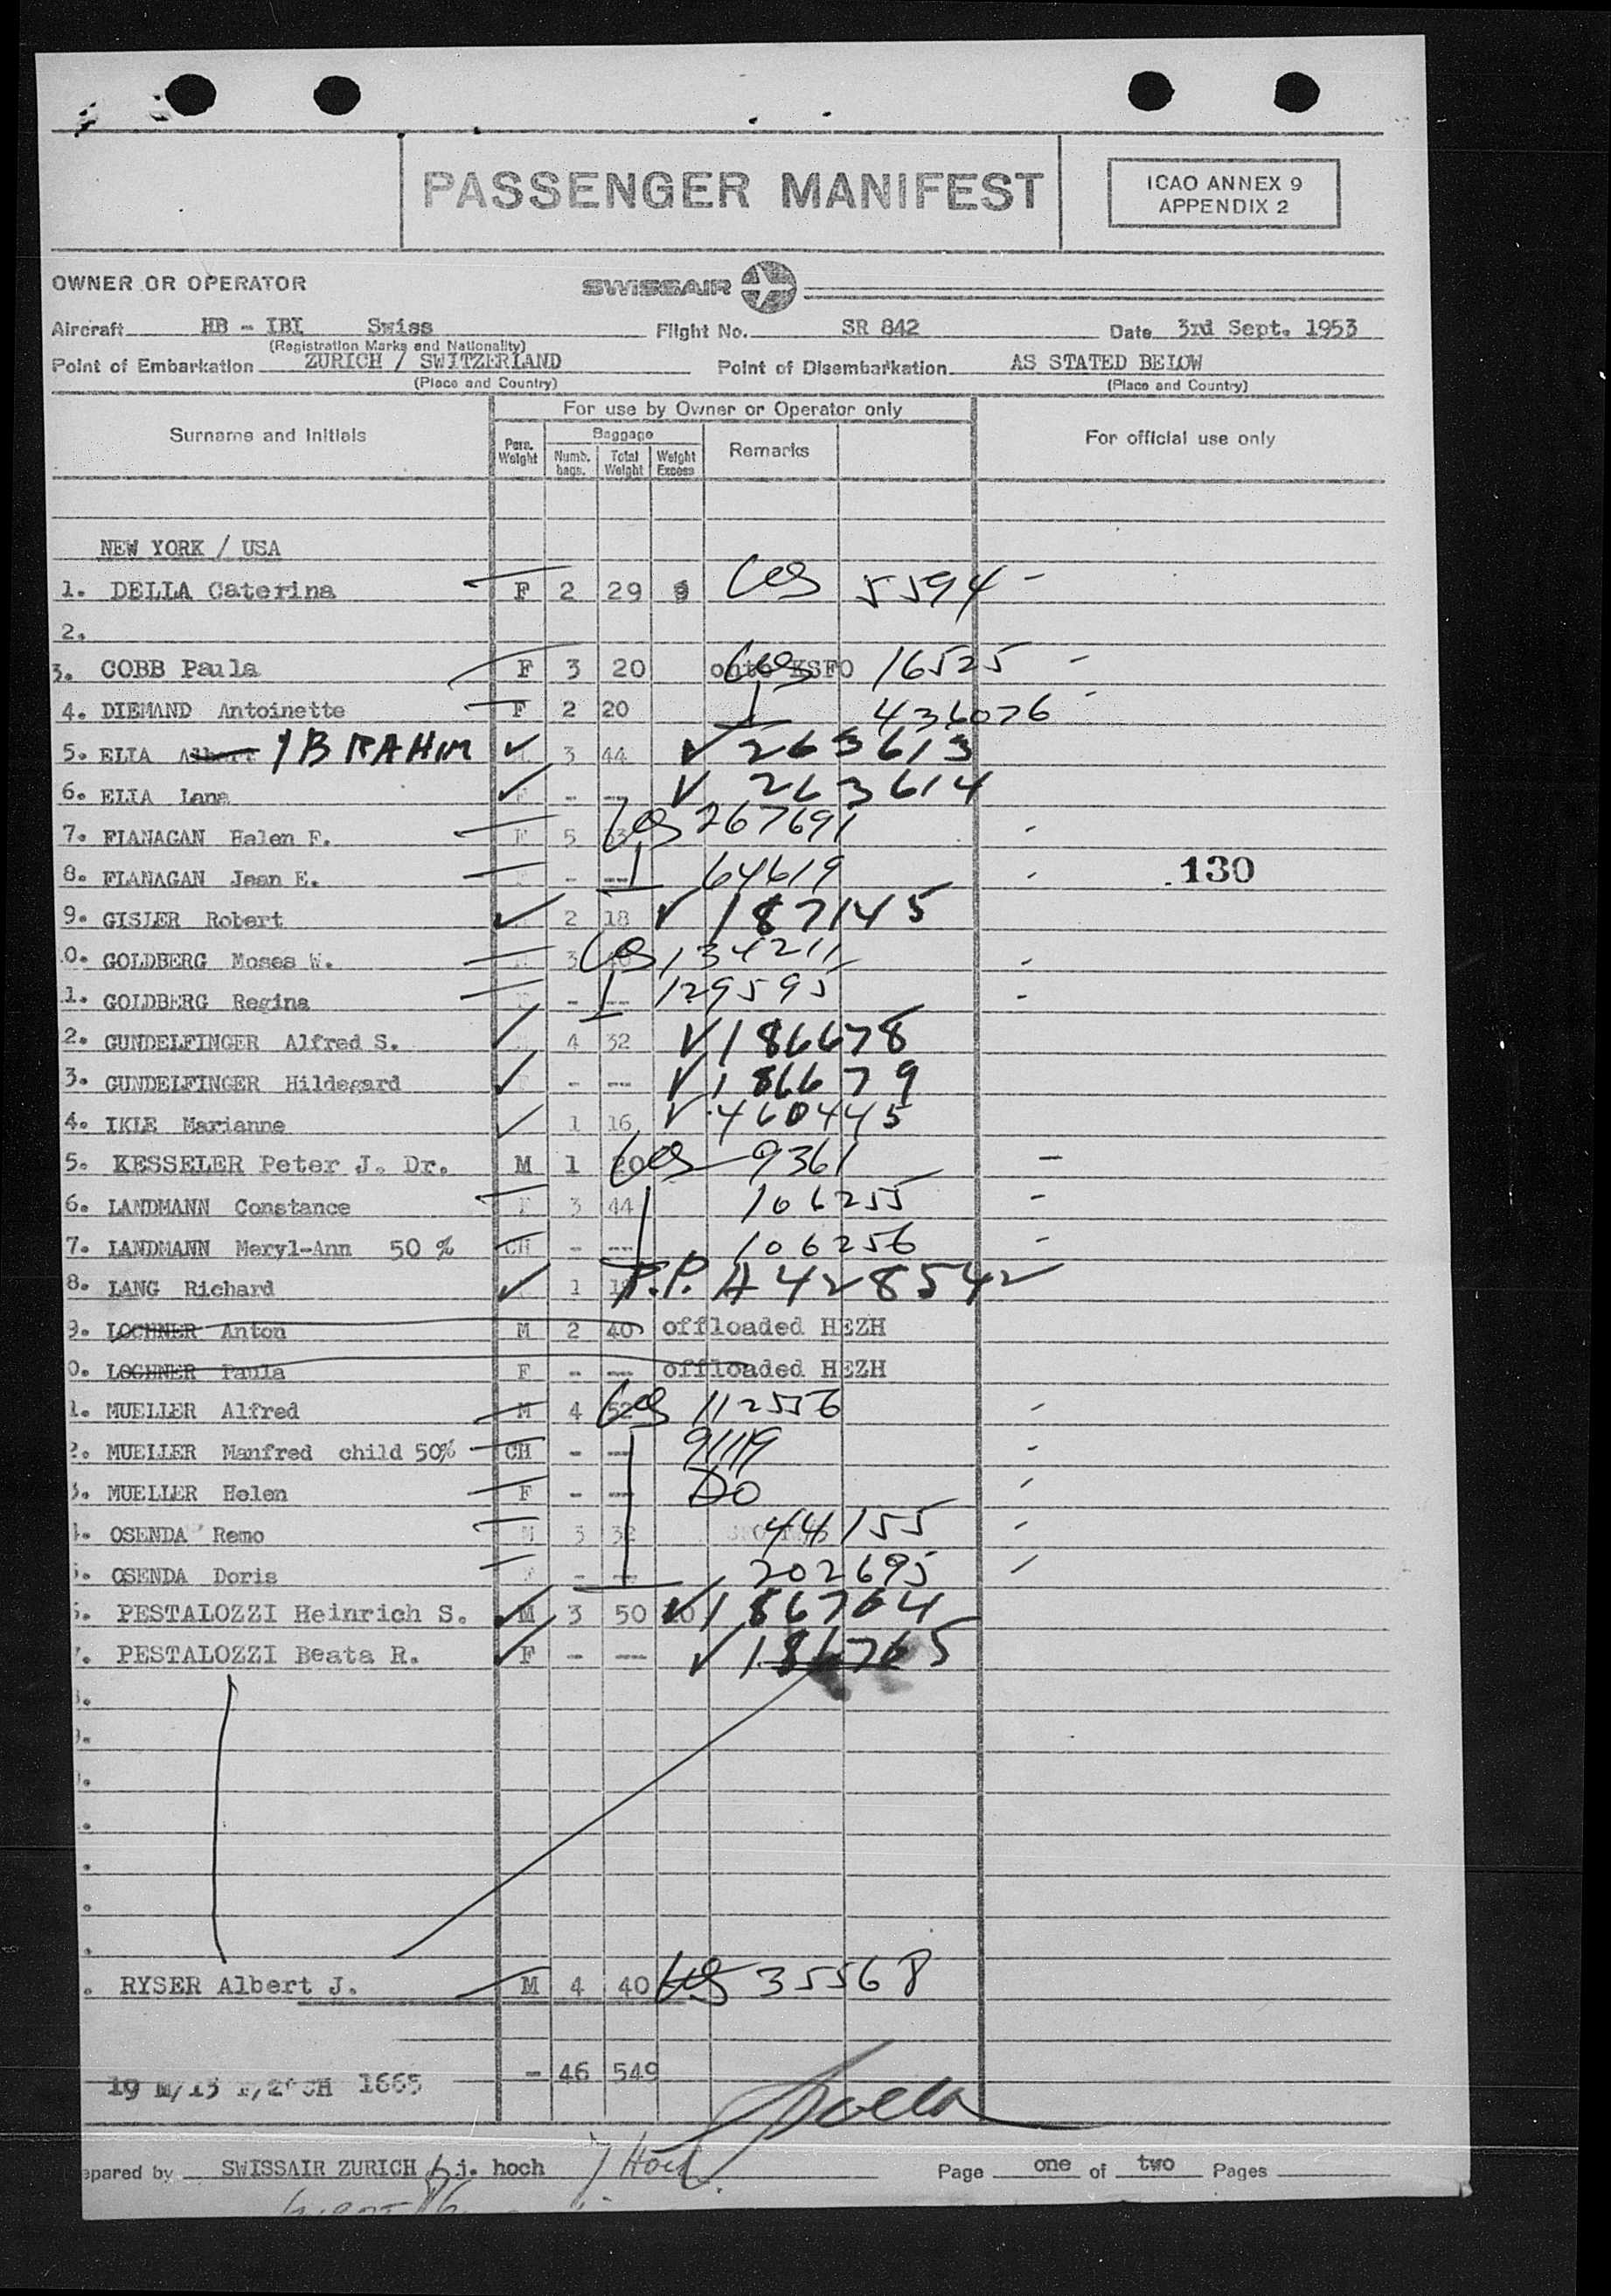 PASSENGER MANIFEST
ICAO ANNEX 9
APPENDIX 2
OWNER OR OPERATOR SWISSAIR
Aircraft HB - IBI Swiss Flight No. SR 842 Date 3rd Sept. 1953
(Registration Marks and Nationality)
Point of Embarkation ZURICH / SWITZERLAND Point of Disembarkation AS STATED BELOW
(Place and Country) (Place and Country)
For use by Owner or Operator only
Surname and Initials Pers. Weight Baggage Numb. bags. Total Weight Weight Excess Remarks For official use only
NEW YORK / USA
1. DELLA Caterina F 2 29 9 5594 -
2.
3. COBB Paula F 3 20 onto KSFO 16525 -
4. DIEMAND Antoinette F 2 20 436076 -
5. ELIA Albert IBRAHIM 3 44 ✓ 263613
6. ELIA Lana F - -- ✓ 263614
7. FLANAGAN Helen F. F 5 267691
8. FLANAGAN Jean E. - -- 64619 130
9. GISLER Robert 2 18 ✓ 187145
0. GOLDBERG Moses W. 3 134211
1. GOLDBERG Regina - -- 129595
2. GUNDELFINGER Alfred S. 4 32 ✓ 186678
3. GUNDELFINGER Hildegard - -- ✓ 186679
4. IKLE Marianne 1 16 ✓ 460445
5. KESSELER Peter J. Dr. M 1 20 9361 -
6. LANDMANN Constance F 3 44 106255 -
7. LANDMANN Meryl-Ann 50 % CH - -- 106256 -
8. LANG Richard 1 P.P. A428542
9. LOCHNER Anton M 2 40 offloaded HEZH
0. LOCHNER Paula F - -- offloaded HEZH
1. MUELLER Alfred M 4 52 112556
2. MUELLER Manfred child 50% CH - -- 91119
3. MUELLER Helen F - -- Do
4. OSENDA Remo M 3 32 44155
5. OSENDA Doris - -- 202695
6. PESTALOZZI Heinrich S. M 3 50 10 ✓ 186764
7. PESTALOZZI Beata R. F - -- ✓ 186765
RYSER Albert J. M 4 40 35568
19 M/13 F/2 CH 1665 - 46 549
epared by SWISSAIR ZURICH j. hoch J Hoch Page one of two Pages